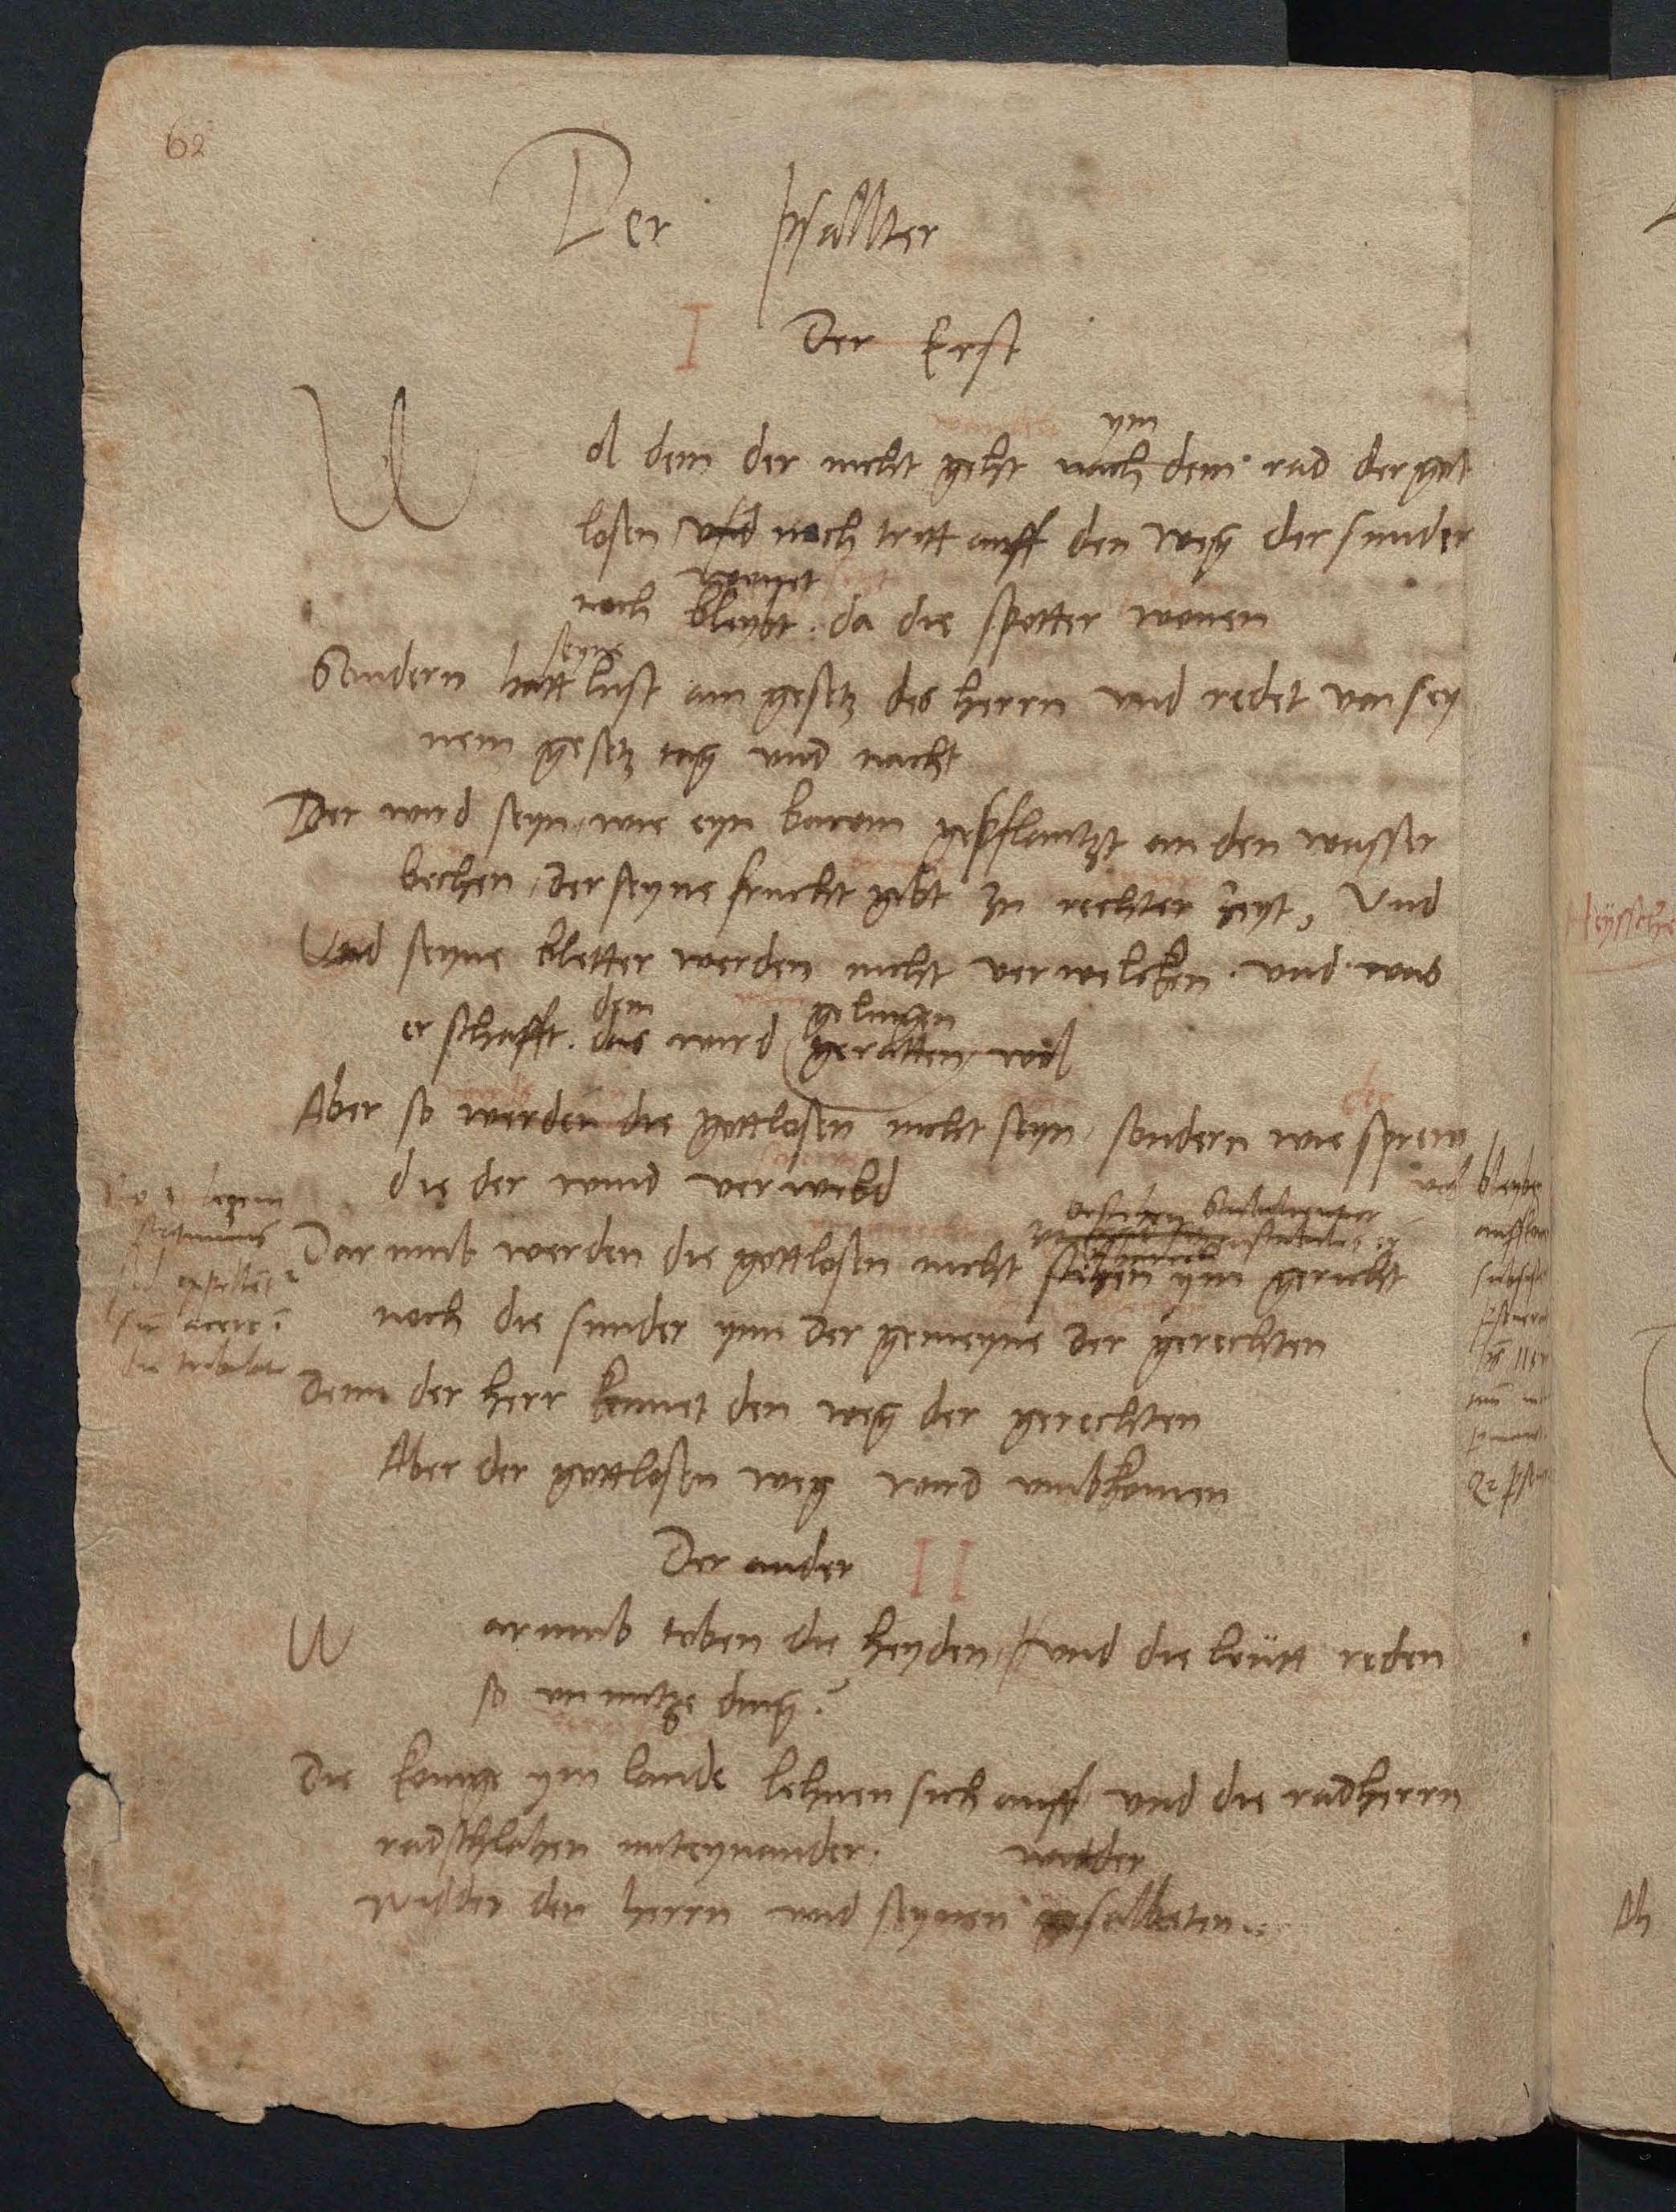 62
Der psallter
I Der Erst
ym
Wol dem der nicht geht nach dem rad der got
losen und noch tritt auff den weg der sunder
wonet
noch bleybt. da die spotter wonen
seyne
Sondern hatt lust am gesetz des herrn und redet von sey
nem gesetz tag und nacht
Der wird seyn, wie eyn bawm gepflantzt an den wasser
bechen, der seyne frucht gibt zu rechter zeyt, Und
Und seyne bletter werden nicht verwelcken. und was
dem gelingen
er schafft. das wird geratten wol
Aber so werden die gottlosen nicht seyn, sondern wie sprew
die der wind verwebd
Darumb werden die gottlosen nicht ym gericht
noch die sunder ynn der gemeyne der gerechten
Denn der herr kennet den weg der gerechten
Aber der gottlosen weg wird umbkomen
Der ander II
Warumb toben die heyden, und die leutt reden
so unnutze ding?
Die konige ym lande lehnen sich auff und die radherrn
radschlahen miteynander. widder
widder den herrn und seynen gesalbeten.